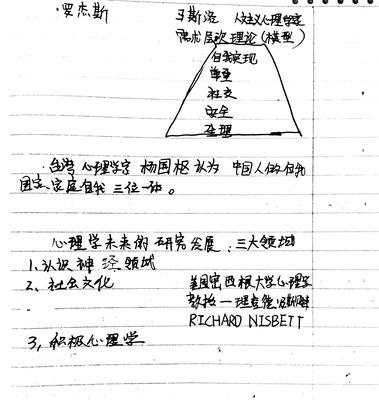 ·罗杰斯
马斯洛 人本主义心理学家
需求层次理论(模型)
自我实现
尊重
社交
安全
生理
·台湾心理学家 杨国枢认为 中国人的自我
国家、家庭、自我 三位一体。
心理学未来的研究发展:三大领域
1.认识神经领域
2、社会文化
美国密西根大学心理学
教授—理查德·
RICHARD NISBETT
3,积极心理学